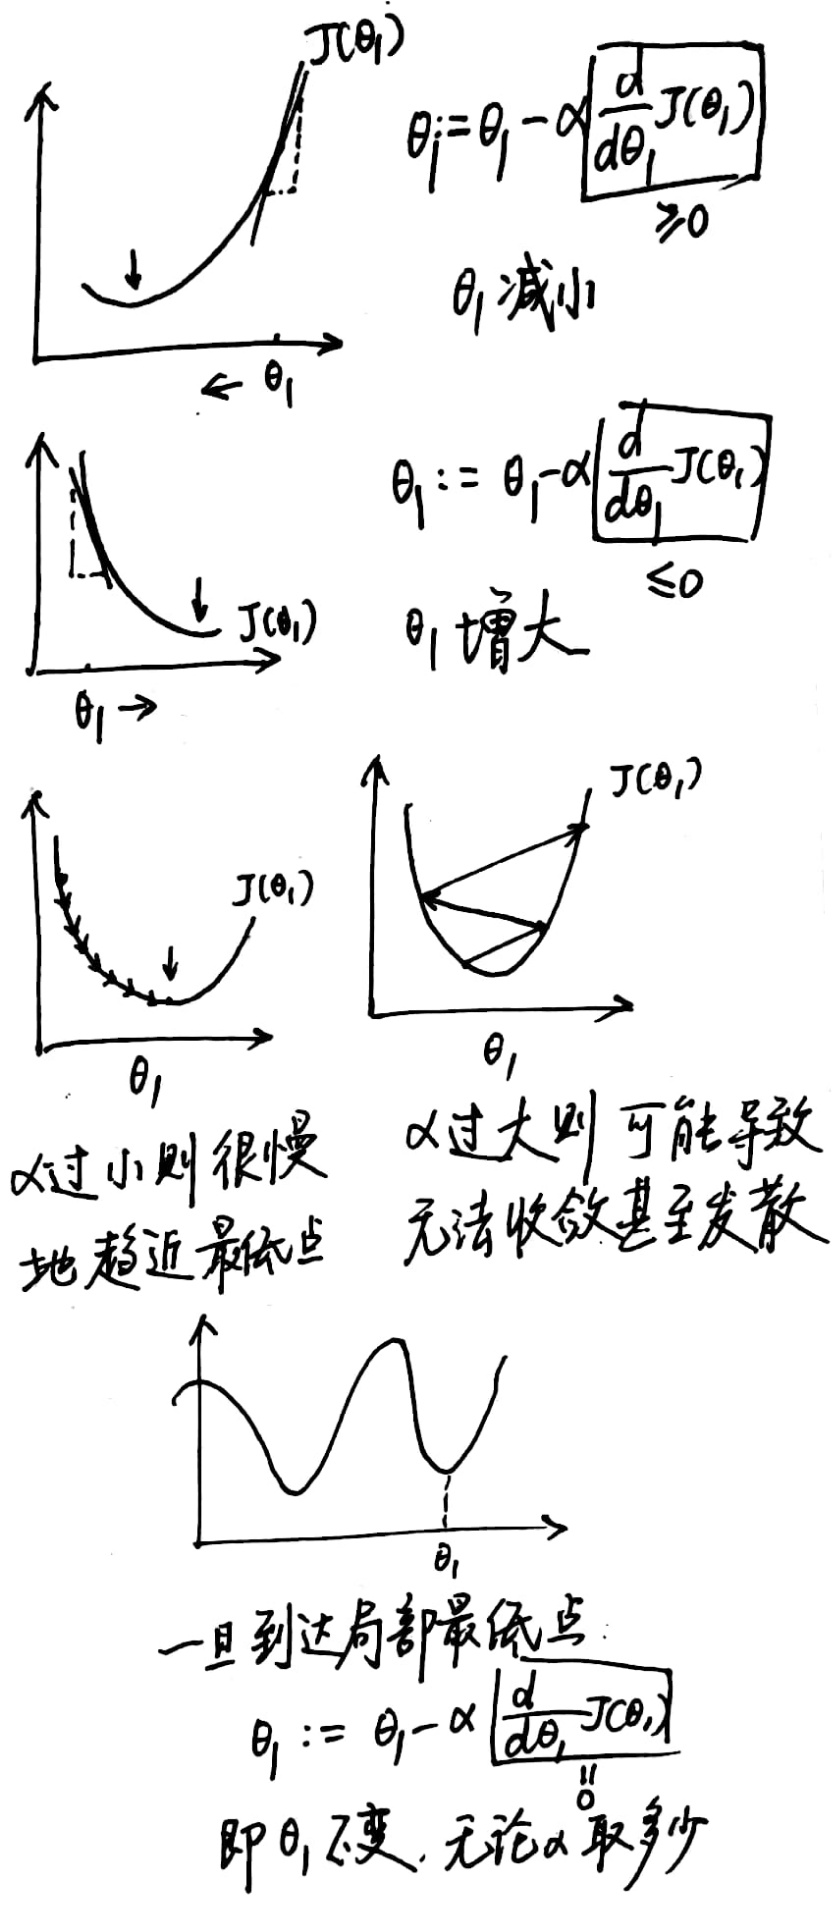 J(θ₁)
θ₁:=θ₁-α d/dθ₁ J(θ₁)
≥0
θ₁减小
← θ₁
θ₁:=θ₁-α d/dθ₁ J(θ₁)
≤0
J(θ₁)
θ₁增大
θ₁→
J(θ₁)
J(θ₁)
θ₁
θ₁
α过小则很慢
地趋近最低点
α过大则可能导致
无法收敛甚至发散
θ₁
一旦到达局部最低点
θ₁:=θ₁-α d/dθ₁ J(θ₁)
=
0
即θ₁不变.无论α取多少